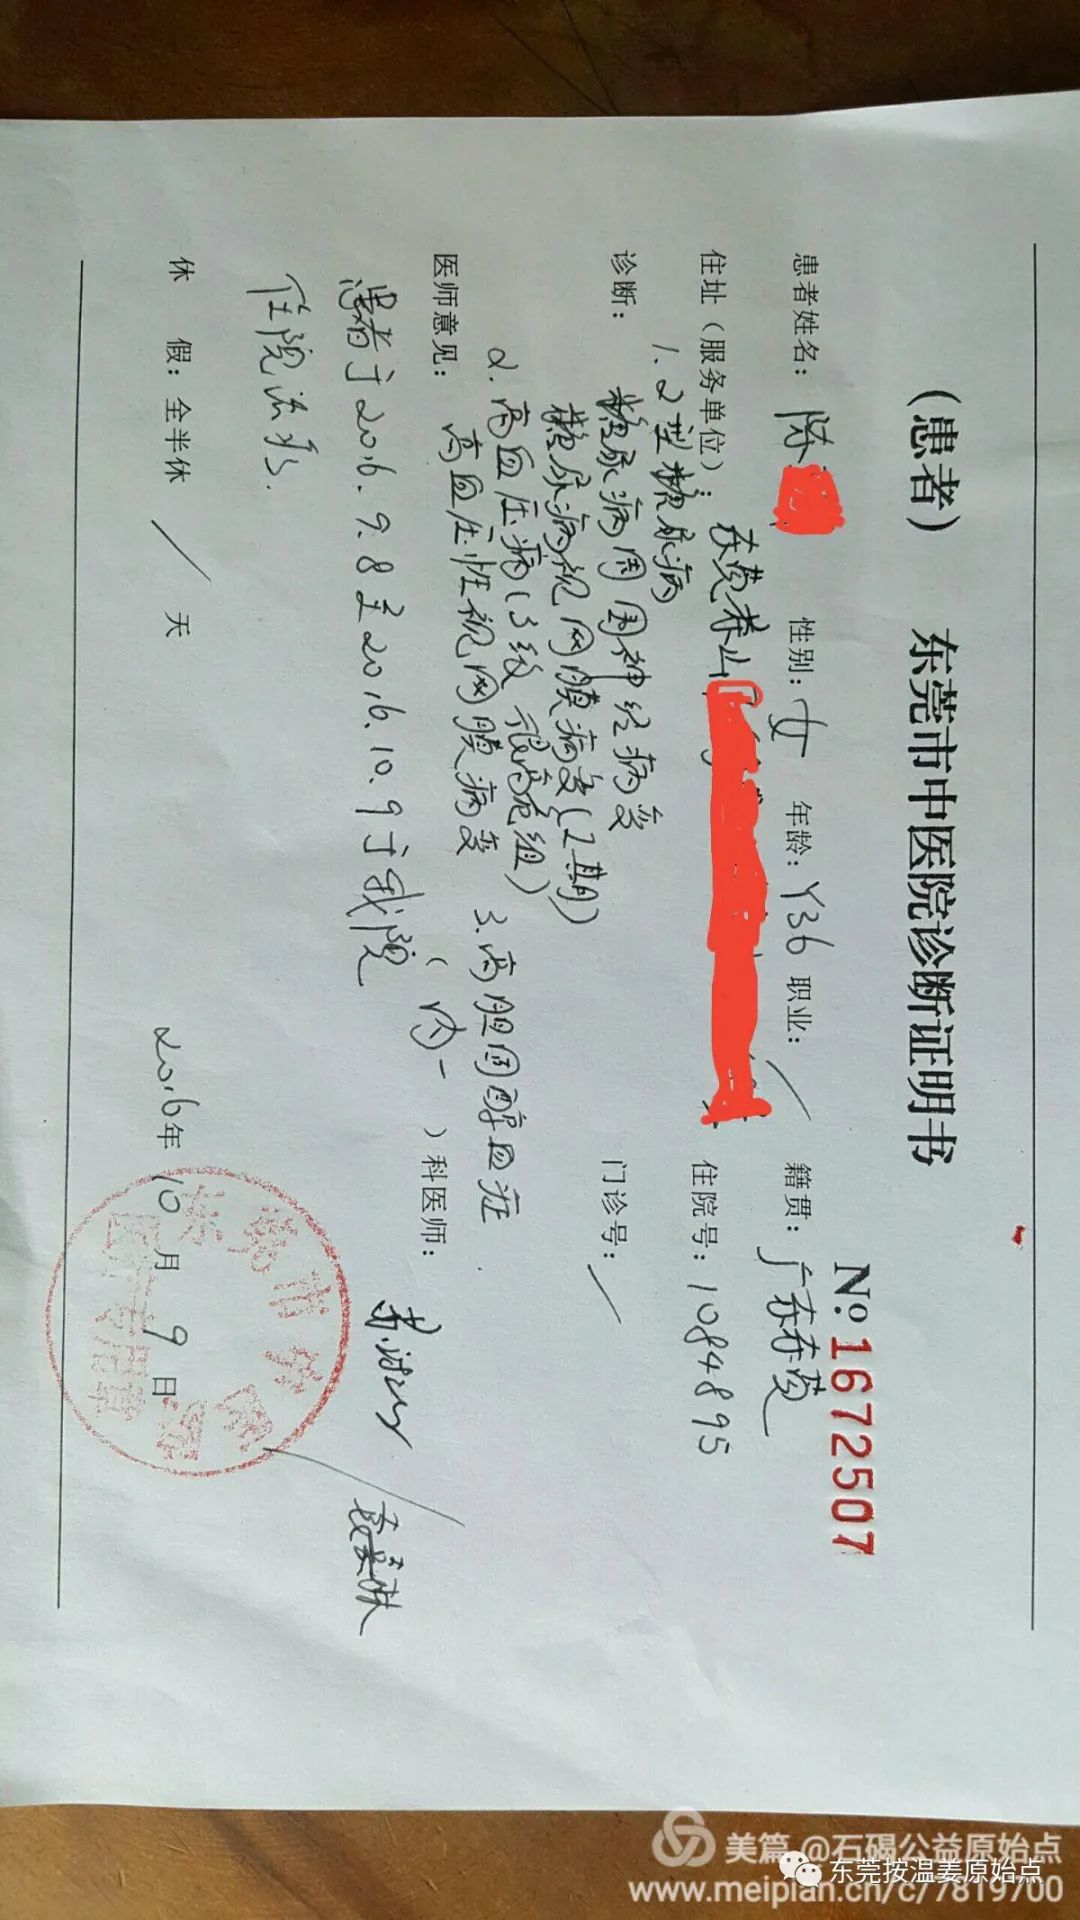 (患者) 东莞市中医院诊断证明书
No: 1672507
患者姓名: 陈 性别: 女 年龄: Y36 职业: / 籍贯: 广东东莞
住址(服务单位): 东莞茶山 住院号: 1084895
诊断: 1. 2型糖尿病 门诊号: /
糖尿病周围神经病变
糖尿病视网膜病变(I期)
2. 高血压病(3级 很高危组) 3. 高胆固醇血症.
高血压性视网膜病变
医师意见: (内一)科医师:
患者于2016.9.8至2016.10.9于我院
住院治疗.
休 假: 全半休 / 天 2016年10月9日
东莞市中医院
美篇 @石碣公益原始点
东莞按温姜原始点
www.meipian.cn/c/7819700